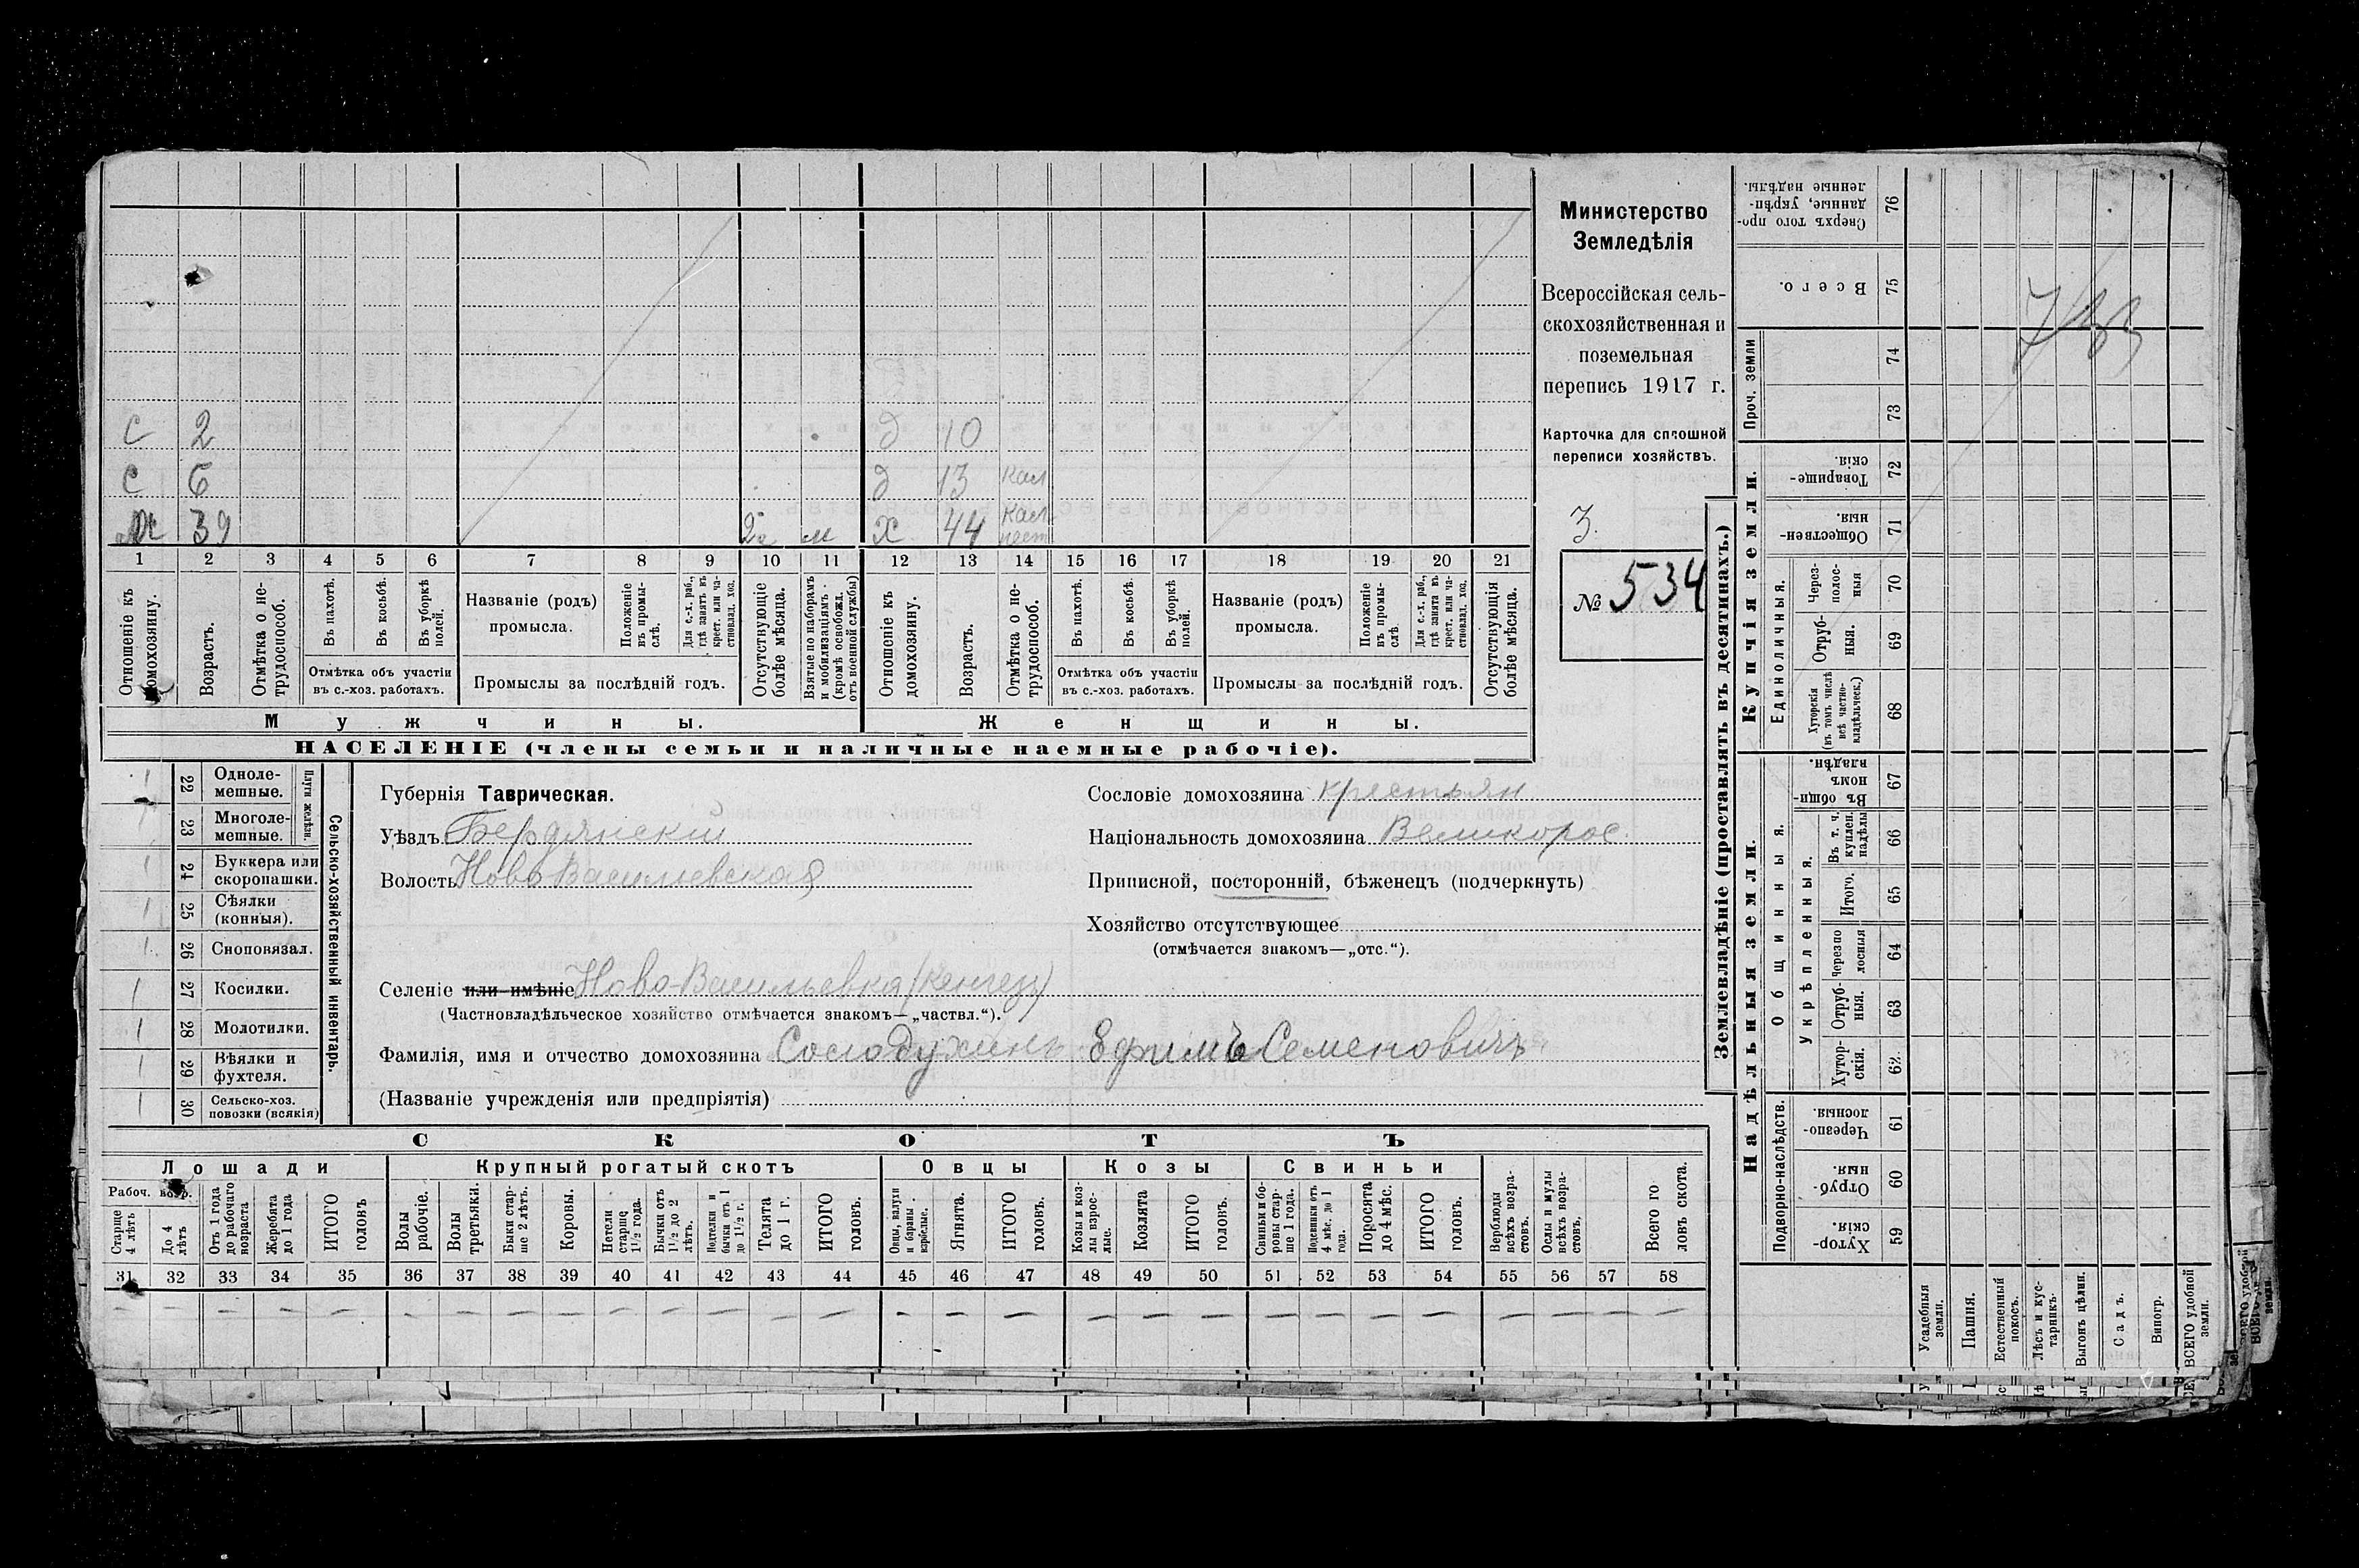 С 2 д 10
С 6 д 13 кал
39 2 м х 44 кал
1 2 3 4 5 6 7 8 9 10 11 12 13 14 15 16 17 18 19 20 21
Отношеніе къ домохозяину.
Возрастъ.
Отмѣтка о не-
трудоспособ.
Въ пахотѣ.
Въ косьбѣ.
Въ уборкѣ
полей.
Отмѣтка объ участіи
въ с.-хоз. работахъ.
Названіе (родъ)
промысла.
Положеніе
въ промы-
слѣ.
Для с.-х. раб.,
гдѣ занятъ въ
крест. или ча-
стновлад. хоз.
Промыслы за послѣдній годъ.
Отсутствующіе
болѣе мѣсяца.
Взятые по наборамъ
и мобилизаціямъ
(кромѣ освобожд.
отъ военной службы)
Отношеніе къ
домохозяину.
Возрастъ.
Отмѣтка о не-
трудоспособ.
Въ пахотѣ.
Въ косьбѣ.
Въ уборкѣ
полей.
Отмѣтка объ участіи
въ с.-хоз. работахъ.
Названіе (родъ)
промысла.
Положеніе
въ промы-
слѣ.
Для с.-х. раб.,
гдѣ занята въ
крест. или ча-
стновлад. хоз.
Промыслы за послѣдній годъ.
Отсутствующія
болѣе мѣсяца.
Мужчины.
Женщины.
НАСЕЛЕНІЕ (члены семьи и наличные наемные рабочіе).
Министерство
Земледѣлія
Всероссійская сель-
скохозяйственная и
поземельная
перепись 1917 г.
Карточка для сплошной
переписи хозяйствъ.
3.
№ 534
22 Одноле-
мешные.
23 Многоле-
мешные.
Плуги желѣзн.
24 Буккера или
скоропашки.
25 Сѣялки
(конныя).
26 Сноповязал.
27 Косилки.
28 Молотилки.
29 Вѣялки и
фухтеля.
30 Сельско-хоз.
повозки (всякія)
Сельско-хозяйственный инвентарь.
Губернія Таврическая.
Уѣздъ Бердянскій
Волость Ново Васильевская
Селеніе или имѣніе Ново-Васильевка (Кенгез)
(Частновладѣльческое хозяйство отмѣчается знакомъ—„частвл.“).
Фамилія, имя и отчество домохозяина Солодухинъ Ефимъ Семеновичъ
(Названіе учрежденія или предпріятія)
Сословіе домохозяина крестьян
Національность домохозяина Великорос.
Приписной, посторонній, бѣженецъ (подчеркнуть)
Хозяйство отсутствующее
(отмѣчается знакомъ—„отс.“).
СКОТЪ
Лошади
Крупный рогатый скотъ
Овцы
Козы
Свиньи
Рабоч. возр.
Старше
4 лѣтъ
До 4
лѣтъ
Отъ 1 года
до рабочаго
возраста
Жеребята
до 1 года
ИТОГО
головъ
Волы
рабочіе.
Волы
третьяки.
Быки стар-
ше 2 лѣтъ.
Коровы.
Нетели
старше
1½ года.
Бычки отъ
1½ до 2
лѣтъ.
Подтелки и
бычки отъ 1
до 1½ г.
Телята
до 1 г.
ИТОГО
головъ.
Овцы, валухи
и бараны
взрослые.
Ягнята.
ИТОГО
головъ.
Козы и коз-
лы взрос-
лые.
Козлята
ИТОГО
головъ.
Свиньи и бо-
ровы стар-
ше 1 года.
Подсвинки отъ
4 мѣс. до 1
года.
Поросята
до 4 мѣс.
ИТОГО
головъ.
Верблюды
всѣхъ возра-
стовъ.
Ослы и мулы
всѣхъ возра-
стовъ.
Всего го
ловъ скота.
31 32 33 34 35 36 37 38 39 40 41 42 43 44 45 46 47 48 49 50 51 52 53 54 55 56 57 58
— — — — — — — — — — — — — — — — — — — — — — — — — — — —
Землевладѣніе (проставлять въ десятинахъ.)
Купчія земли.
Надѣльныя земли.
Сверхъ того про-
данные, укрѣп-
ленные надѣлы. 76
Всего. 75
Проч. земли
74
73
Товарище-
скія. 72
Обществен-
ныя. 71
Единоличныя.
Через-
полос-
ныя 70
Отруб-
ныя. 69
Хуторскія
(въ томъ числѣ
всѣ частно-
владѣльческ.) 68
Общинныя.
Въ общин-
номъ
владѣн. 67
Укрѣпленныя.
Въ т. ч.
куплен.
надѣлы 66
Итого. 65
Черезпо
лосныя 64
Отруб-
ныя. 63
Хутор-
скія. 62
Подворно-наслѣдств.
Черезпо-
лосныя 61
Отруб-
ныя. 60
Хутор-
скія. 59
Усадебныя
земли.
Пашня.
Естественный
покосъ.
Лѣсъ и кус-
тарникъ.
Выгонъ цѣлин.
Садъ.
Виногр.
ВСЕГО удобной
земли.